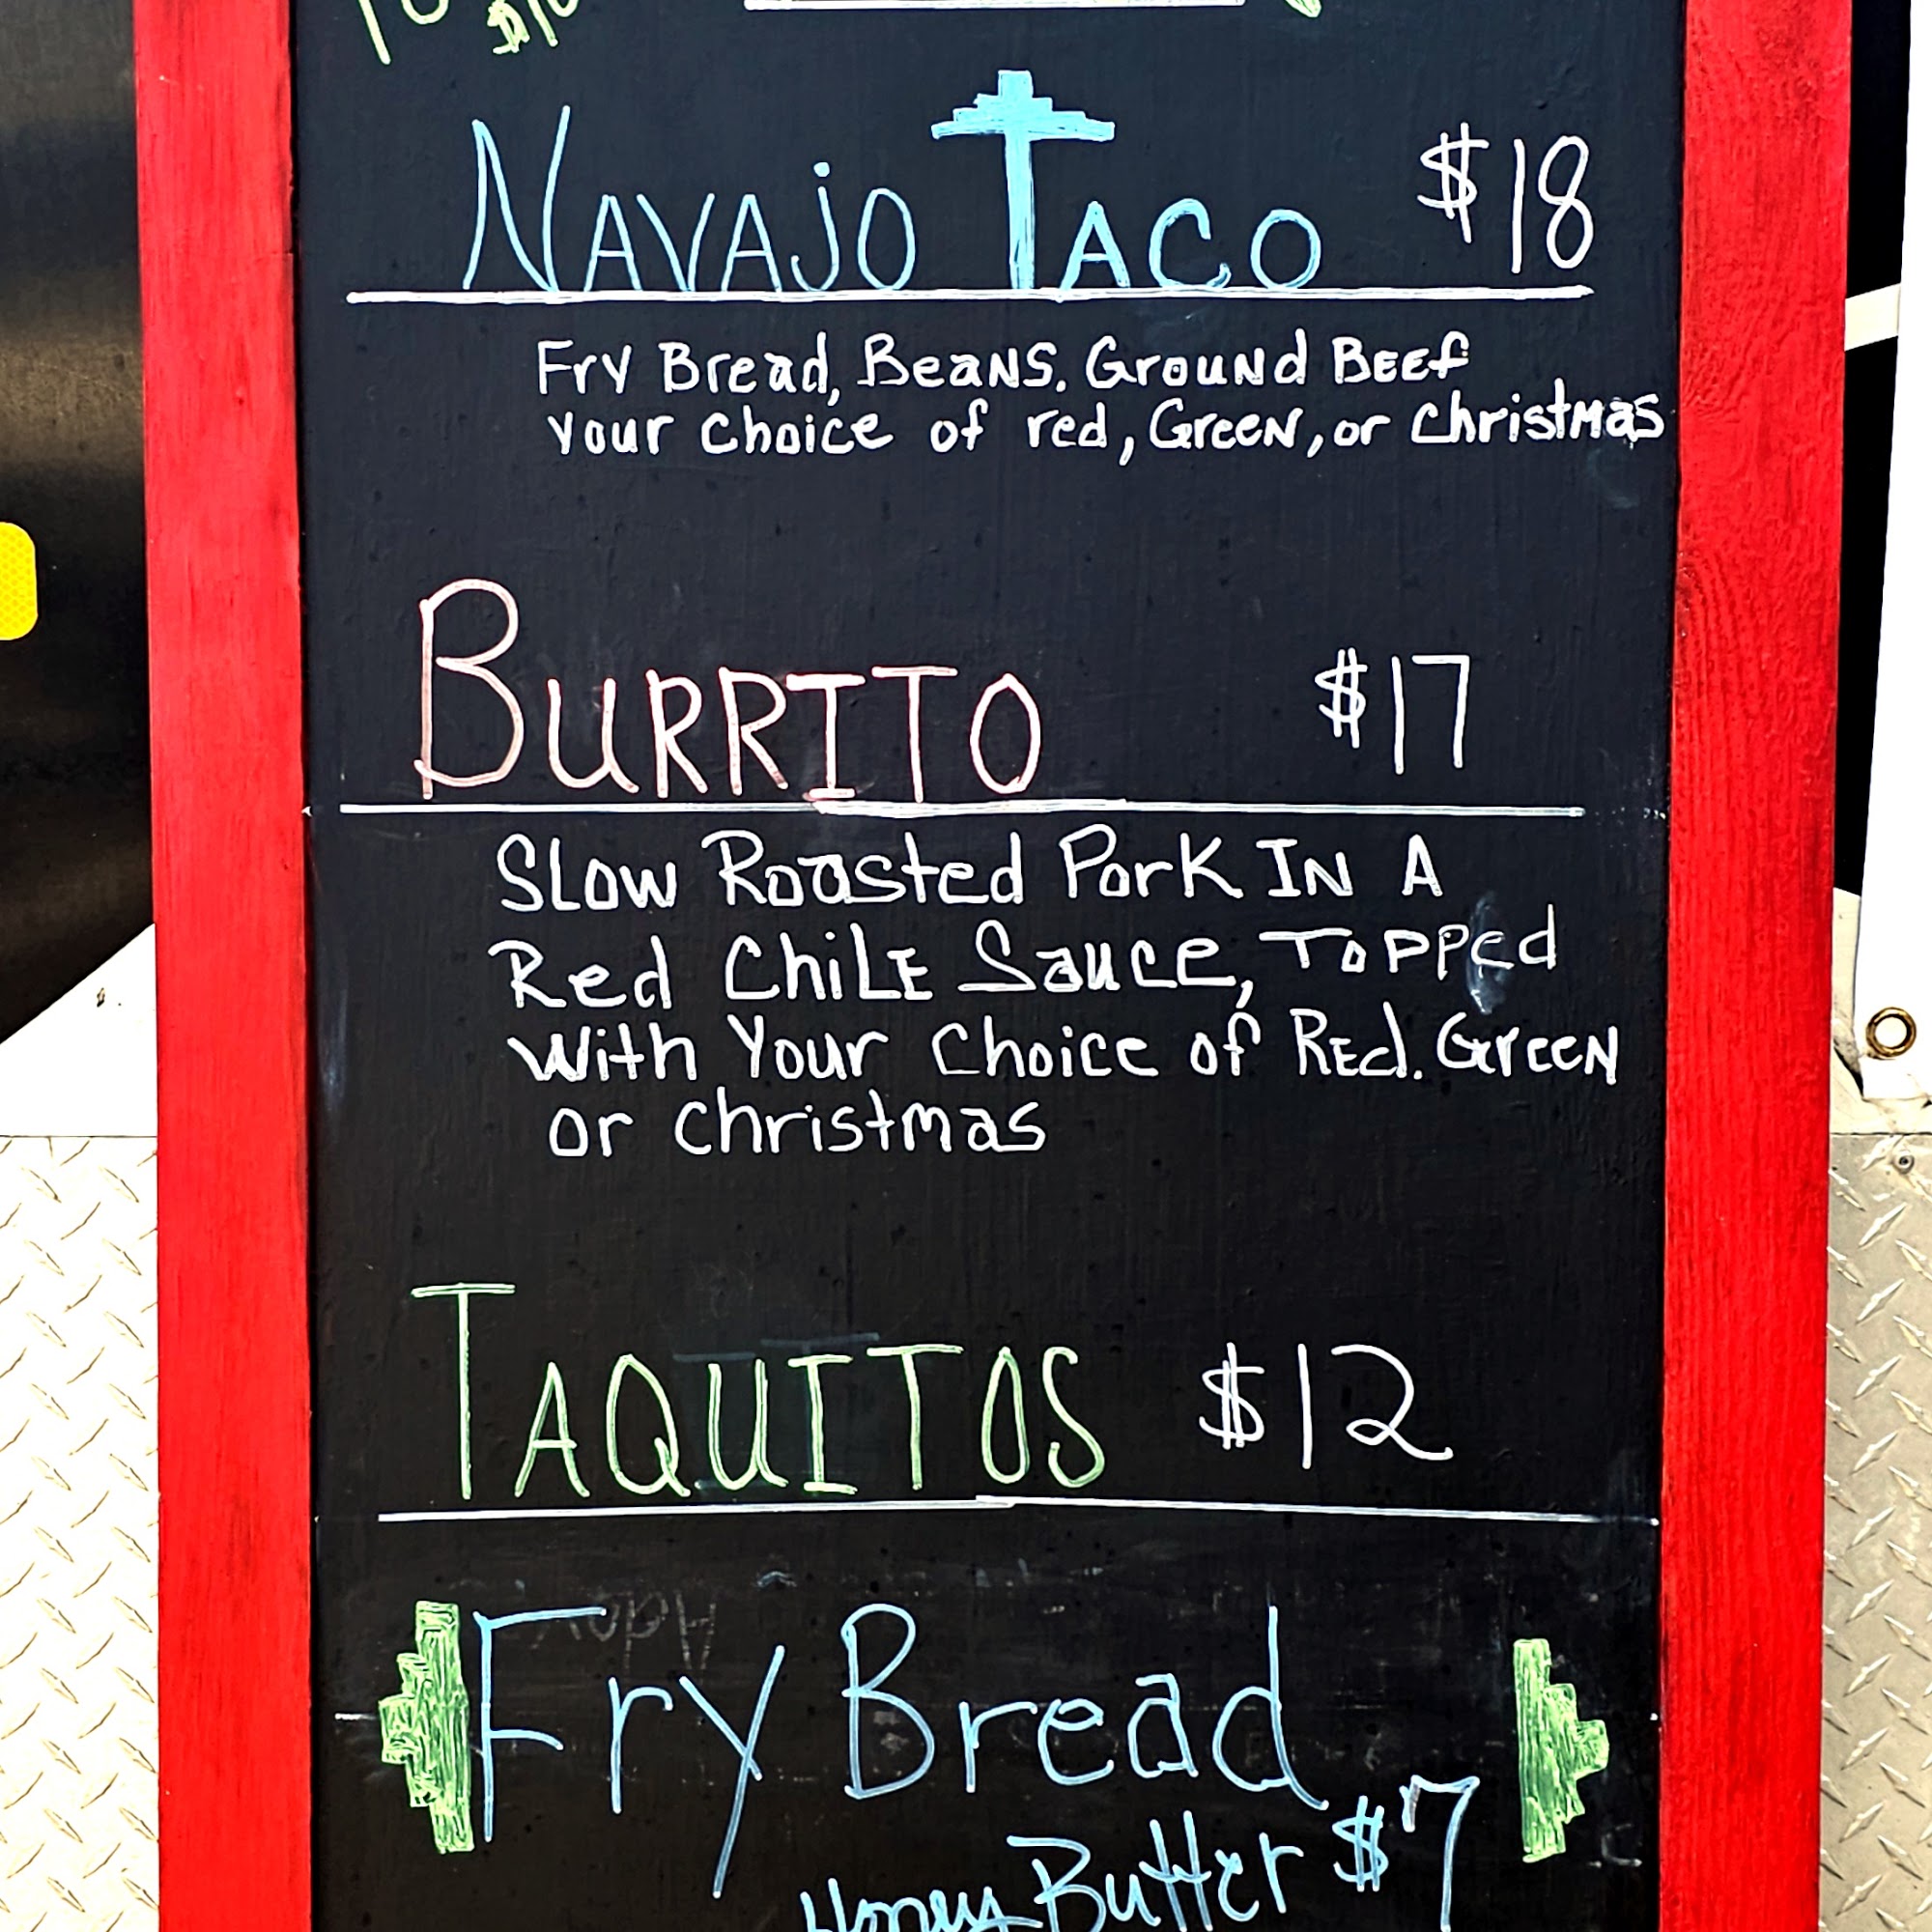 NAVAJO TACO $18
Fry Bread, BeaNS. GrouNd BEEf
your choice of red, GreeN, or christmas
BURRITO $17
SLow Roasted PorK IN A
Red ChiLE Sauce, TOPPed
With Your Choice of REd. GreeN
or christmas
TAQUITOS $12
Fry Bread
Honey Butter $7